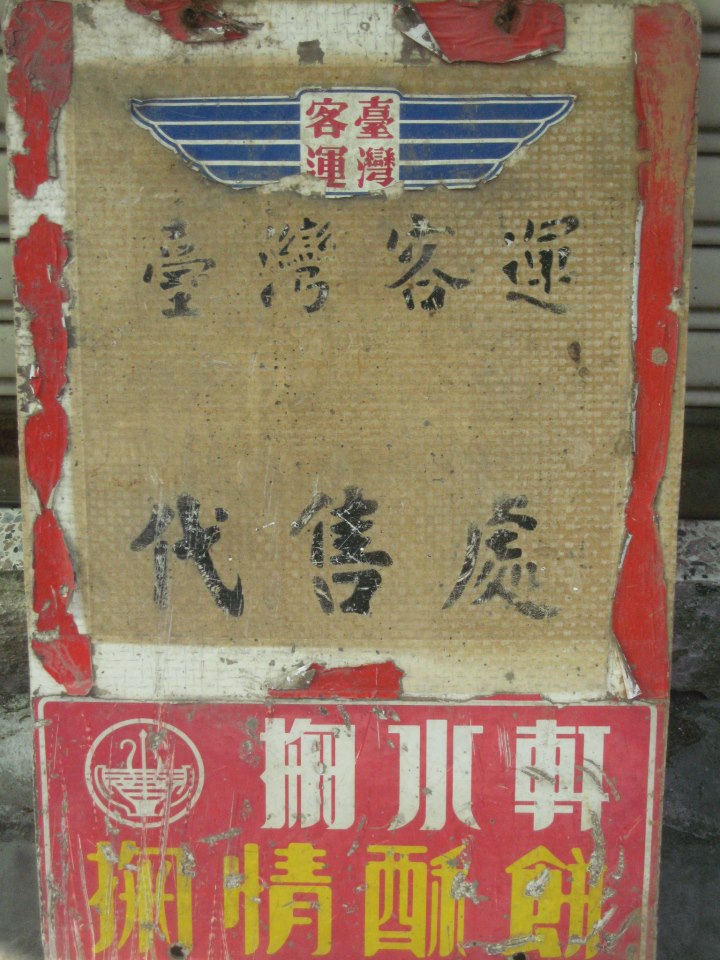 臺灣
客運
臺灣客運
代售處
掬水軒
掬情酥餅